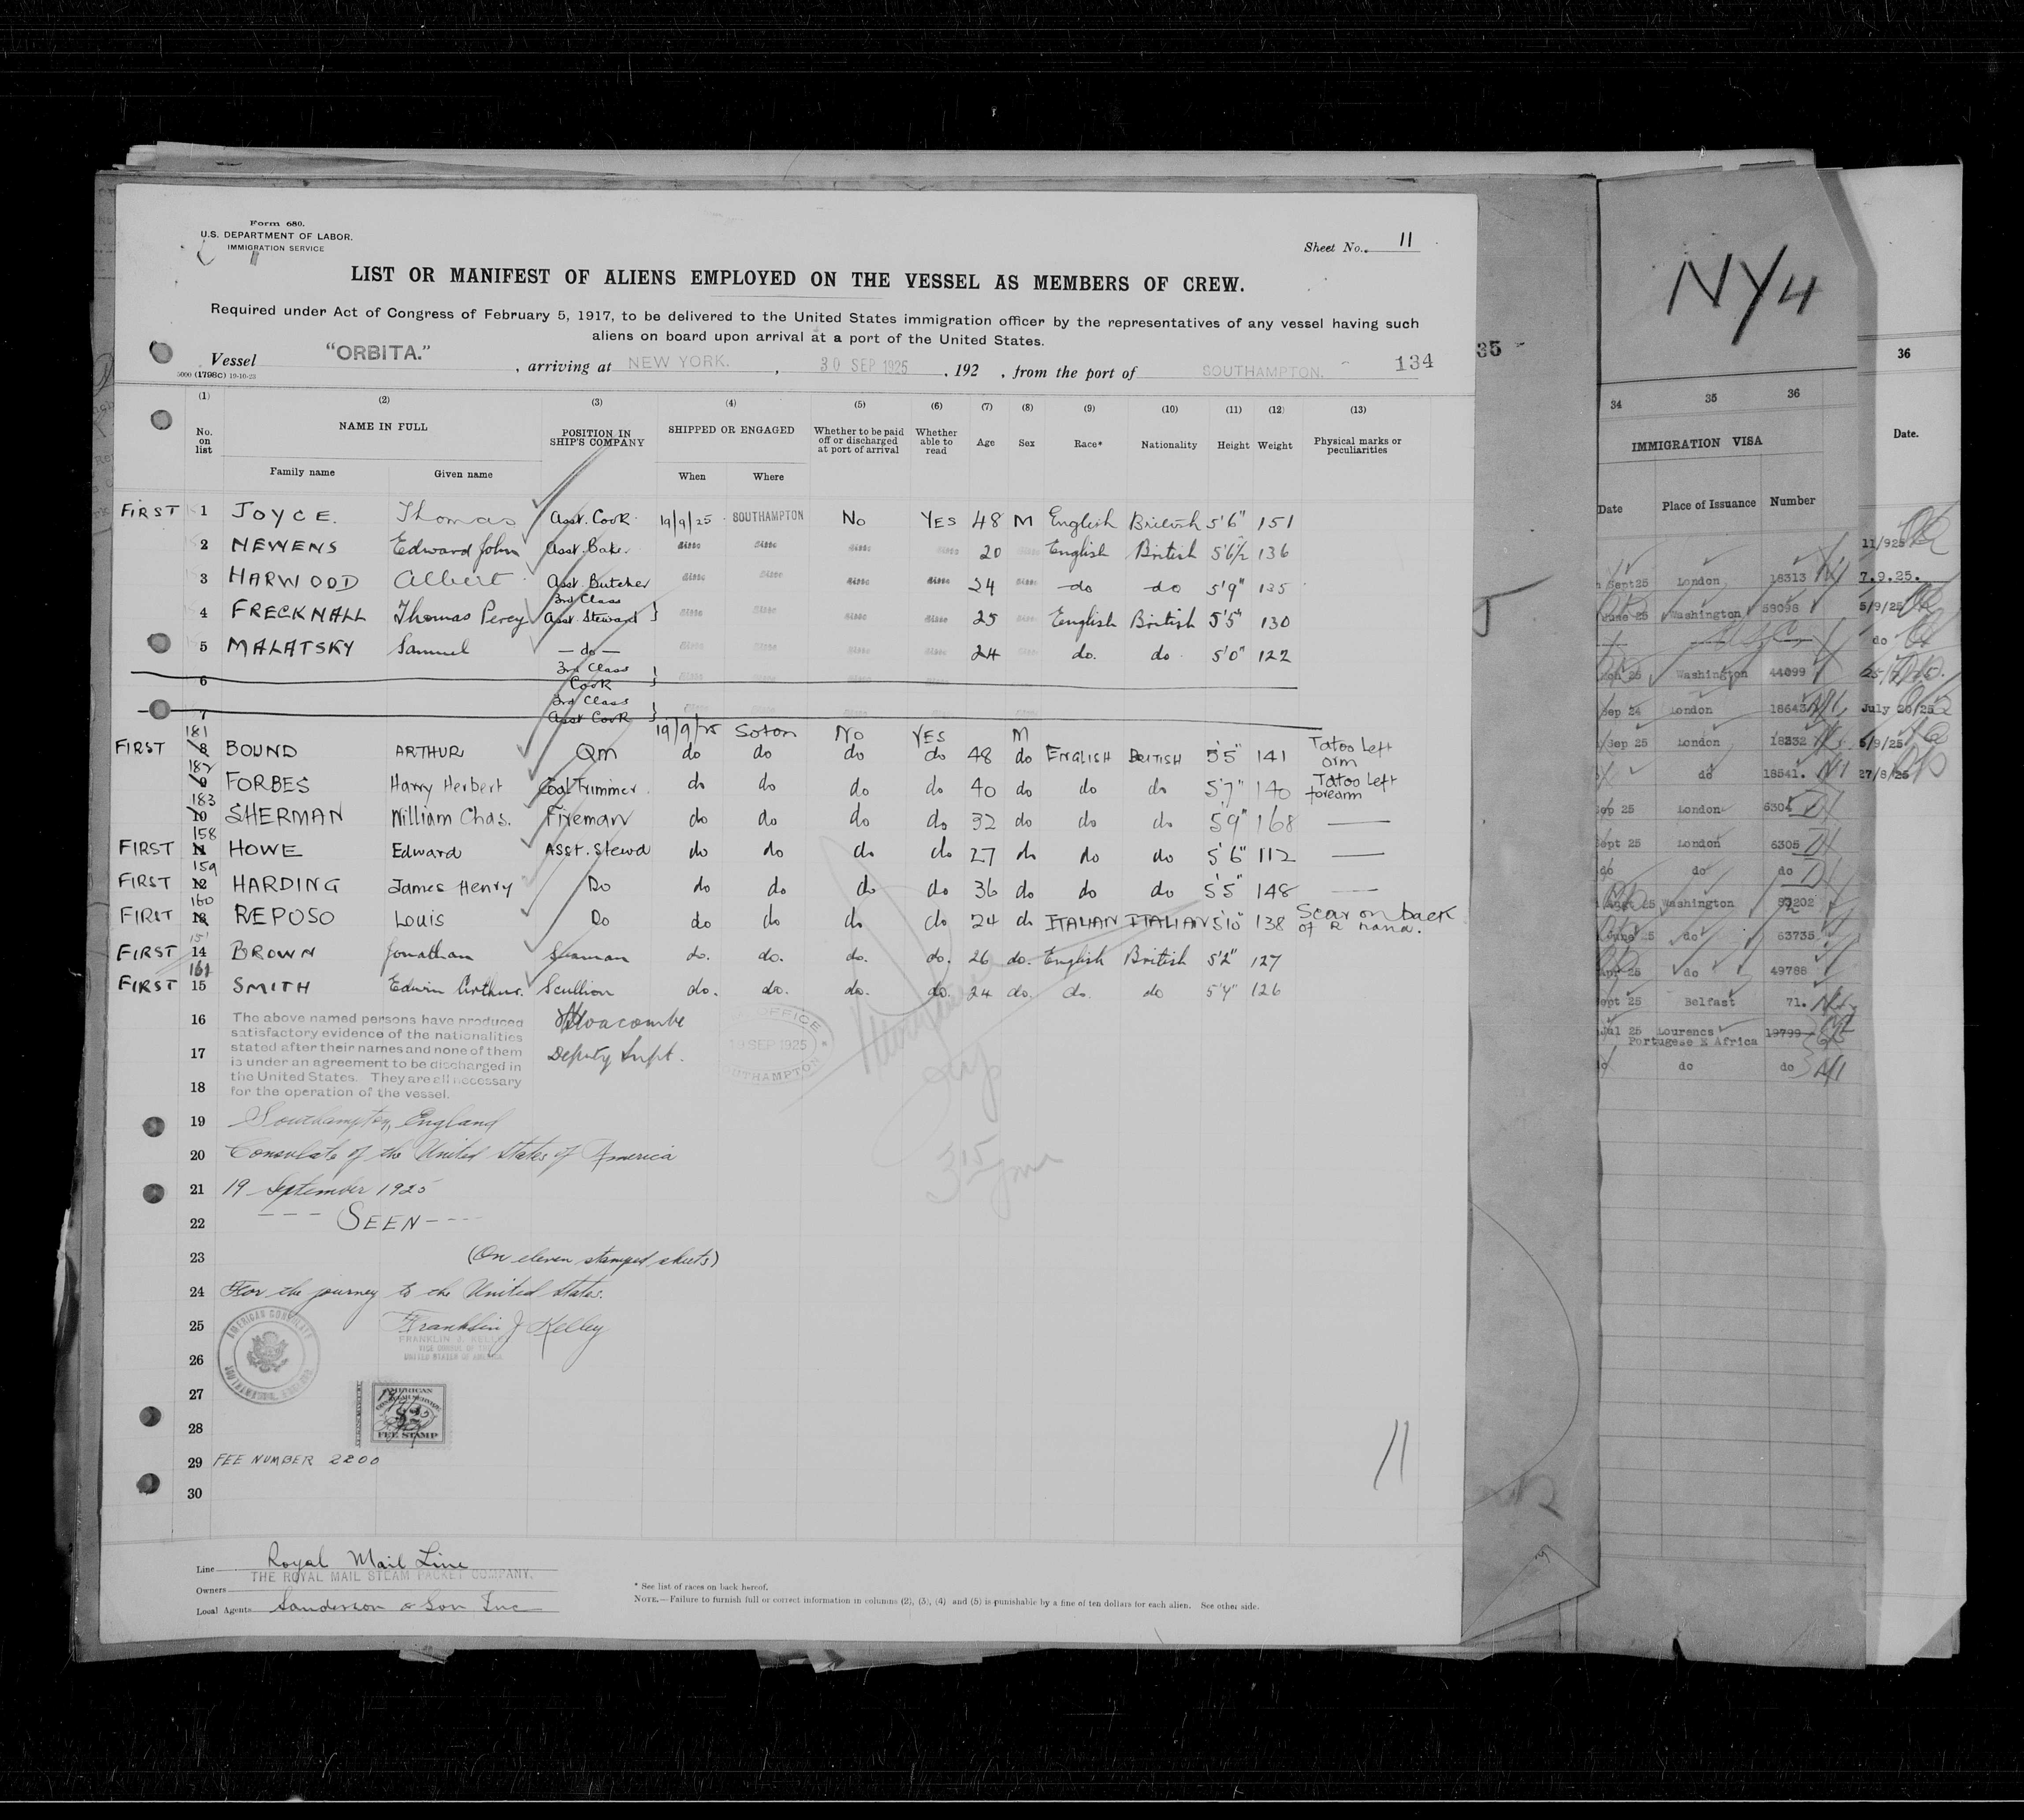 Form 680.
U.S. DEPARTMENT OF LABOR.
IMMIGRATION SERVICE
Sheet No. 11
LIST OR MANIFEST OF ALIENS EMPLOYED ON THE VESSEL AS MEMBERS OF CREW.
Required under Act of Congress of February 5, 1917, to be delivered to the United States immigration officer by the representatives of any vessel having such
aliens on board upon arrival at a port of the United States.
Vessel "ORBITA." , arriving at NEW YORK. , 30 SEP 1925 , 192 , from the port of SOUTHAMPTON. 134
5000 (1798C) 19-10-23
(1) (2) (3) (4) (5) (6) (7) (8) (9) (10) (11) (12) (13)
No. on list NAME IN FULL Family name Given name POSITION IN SHIP'S COMPANY SHIPPED OR ENGAGED When Where Whether to be paid off or discharged at port of arrival Whether able to read Age Sex Race* Nationality Height Weight Physical marks or peculiarities
FIRST 1 JOYCE. Thomas Asst. Cook 19/9/25 SOUTHAMPTON No YES 48 M English British 5'6" 151
2 NEWENS Edward John Asst. Baker Ditto Ditto Ditto Ditto 20 Ditto English British 5'6½ 136
3 HARWOOD Albert Asst. Butcher Ditto Ditto Ditto Ditto 24 Ditto do do 5'9" 135
4 FRECKNALL Thomas Percy 3rd Class Asst. Steward } Ditto Ditto Ditto Ditto 25 Ditto English British 5'5" 130
5 MALATSKY Samuel — do — Ditto Ditto Ditto Ditto 24 Ditto do. do. 5'0" 122
6 3rd Class Cook }
7 3rd Class Asst Cook }
19/9/25 Soton No YES M
FIRST 181 8 BOUND ARTHUR QM do do do do 48 do ENGLISH BRITISH 5'5" 141 Tatoo Left arm
182 9 FORBES Harry Herbert Coal Trimmer. do do do do 40 do do do 5'7" 140 Tatoo Left forearm
183 10 SHERMAN William Chas. Fireman do do do do 32 do do do 5'9" 168 —
FIRST 158 11 HOWE Edward Asst. Stewd do do do do 27 do do do 5'6" 112 —
FIRST 159 12 HARDING James Henry Do do do do do 36 do do do 5'5" 148 —
FIRST 160 13 REPOSO Louis Do do do do do 24 do ITALIAN ITALIAN 5'10" 138 Scar on back of R hand.
FIRST 14 BROWN Jonathan Seaman do. do. do. do. 26 do. English British 5'2" 127
FIRST 161 15 SMITH Edwin Arthur. Scullion do. do. do. do. 24 do. do. do 5'4" 126
16 The above named persons have produced
satisfactory evidence of the nationalities
17 stated after their names and none of them
is under an agreement to be discharged in
18 the United States. They are all necessary
for the operation of the vessel.
Deputy Supt.
OFFICE
19 SEP 1925
SOUTHAMPTON
19 Southampton, England
20 Consulate of the United States of America
21 19 September 1925
22 --- SEEN ----
23 (On eleven stamped sheets)
24 For the journey to the United States.
25 Franklin J Kelley
FRANKLIN J. KELLEY
VICE CONSUL OF THE
26 UNITED STATES OF AMERICA
AMERICAN CONSULATE
SOUTHAMPTON, ENGLAND
27
AMERICAN
$2
28
FEE STAMP
29 FEE NUMBER 2200
30
11
Line Royal Mail Line
Owners THE ROYAL MAIL STEAM PACKET COMPANY.
Local Agents Sanderson & Son Inc
* See list of races on back hereof.
NOTE.—Failure to furnish full or correct information in columns (2), (3), (4) and (5) is punishable by a fine of ten dollars for each alien. See other side.
35
NY4
34 35 36
IMMIGRATION VISA
Date Place of Issuance Number
Sept 25 London 18313
June 25 Washington 58098
25 Washington 44099
Sep 24 London 18643
Sep 25 London 18332
do 18541.
Sep 25 London 6304
Sept 25 London 6305
do do do
25 Washington
June 25 do 63735
Apr 25 do 49788
Sept 25 Belfast 71.
Jul 25 Lourencs 19799
Portugese E Africa
do do do
36
Date.
11/925
7.9.25.
5/9/25
do
July 20/25
5/9/25
27/8/25